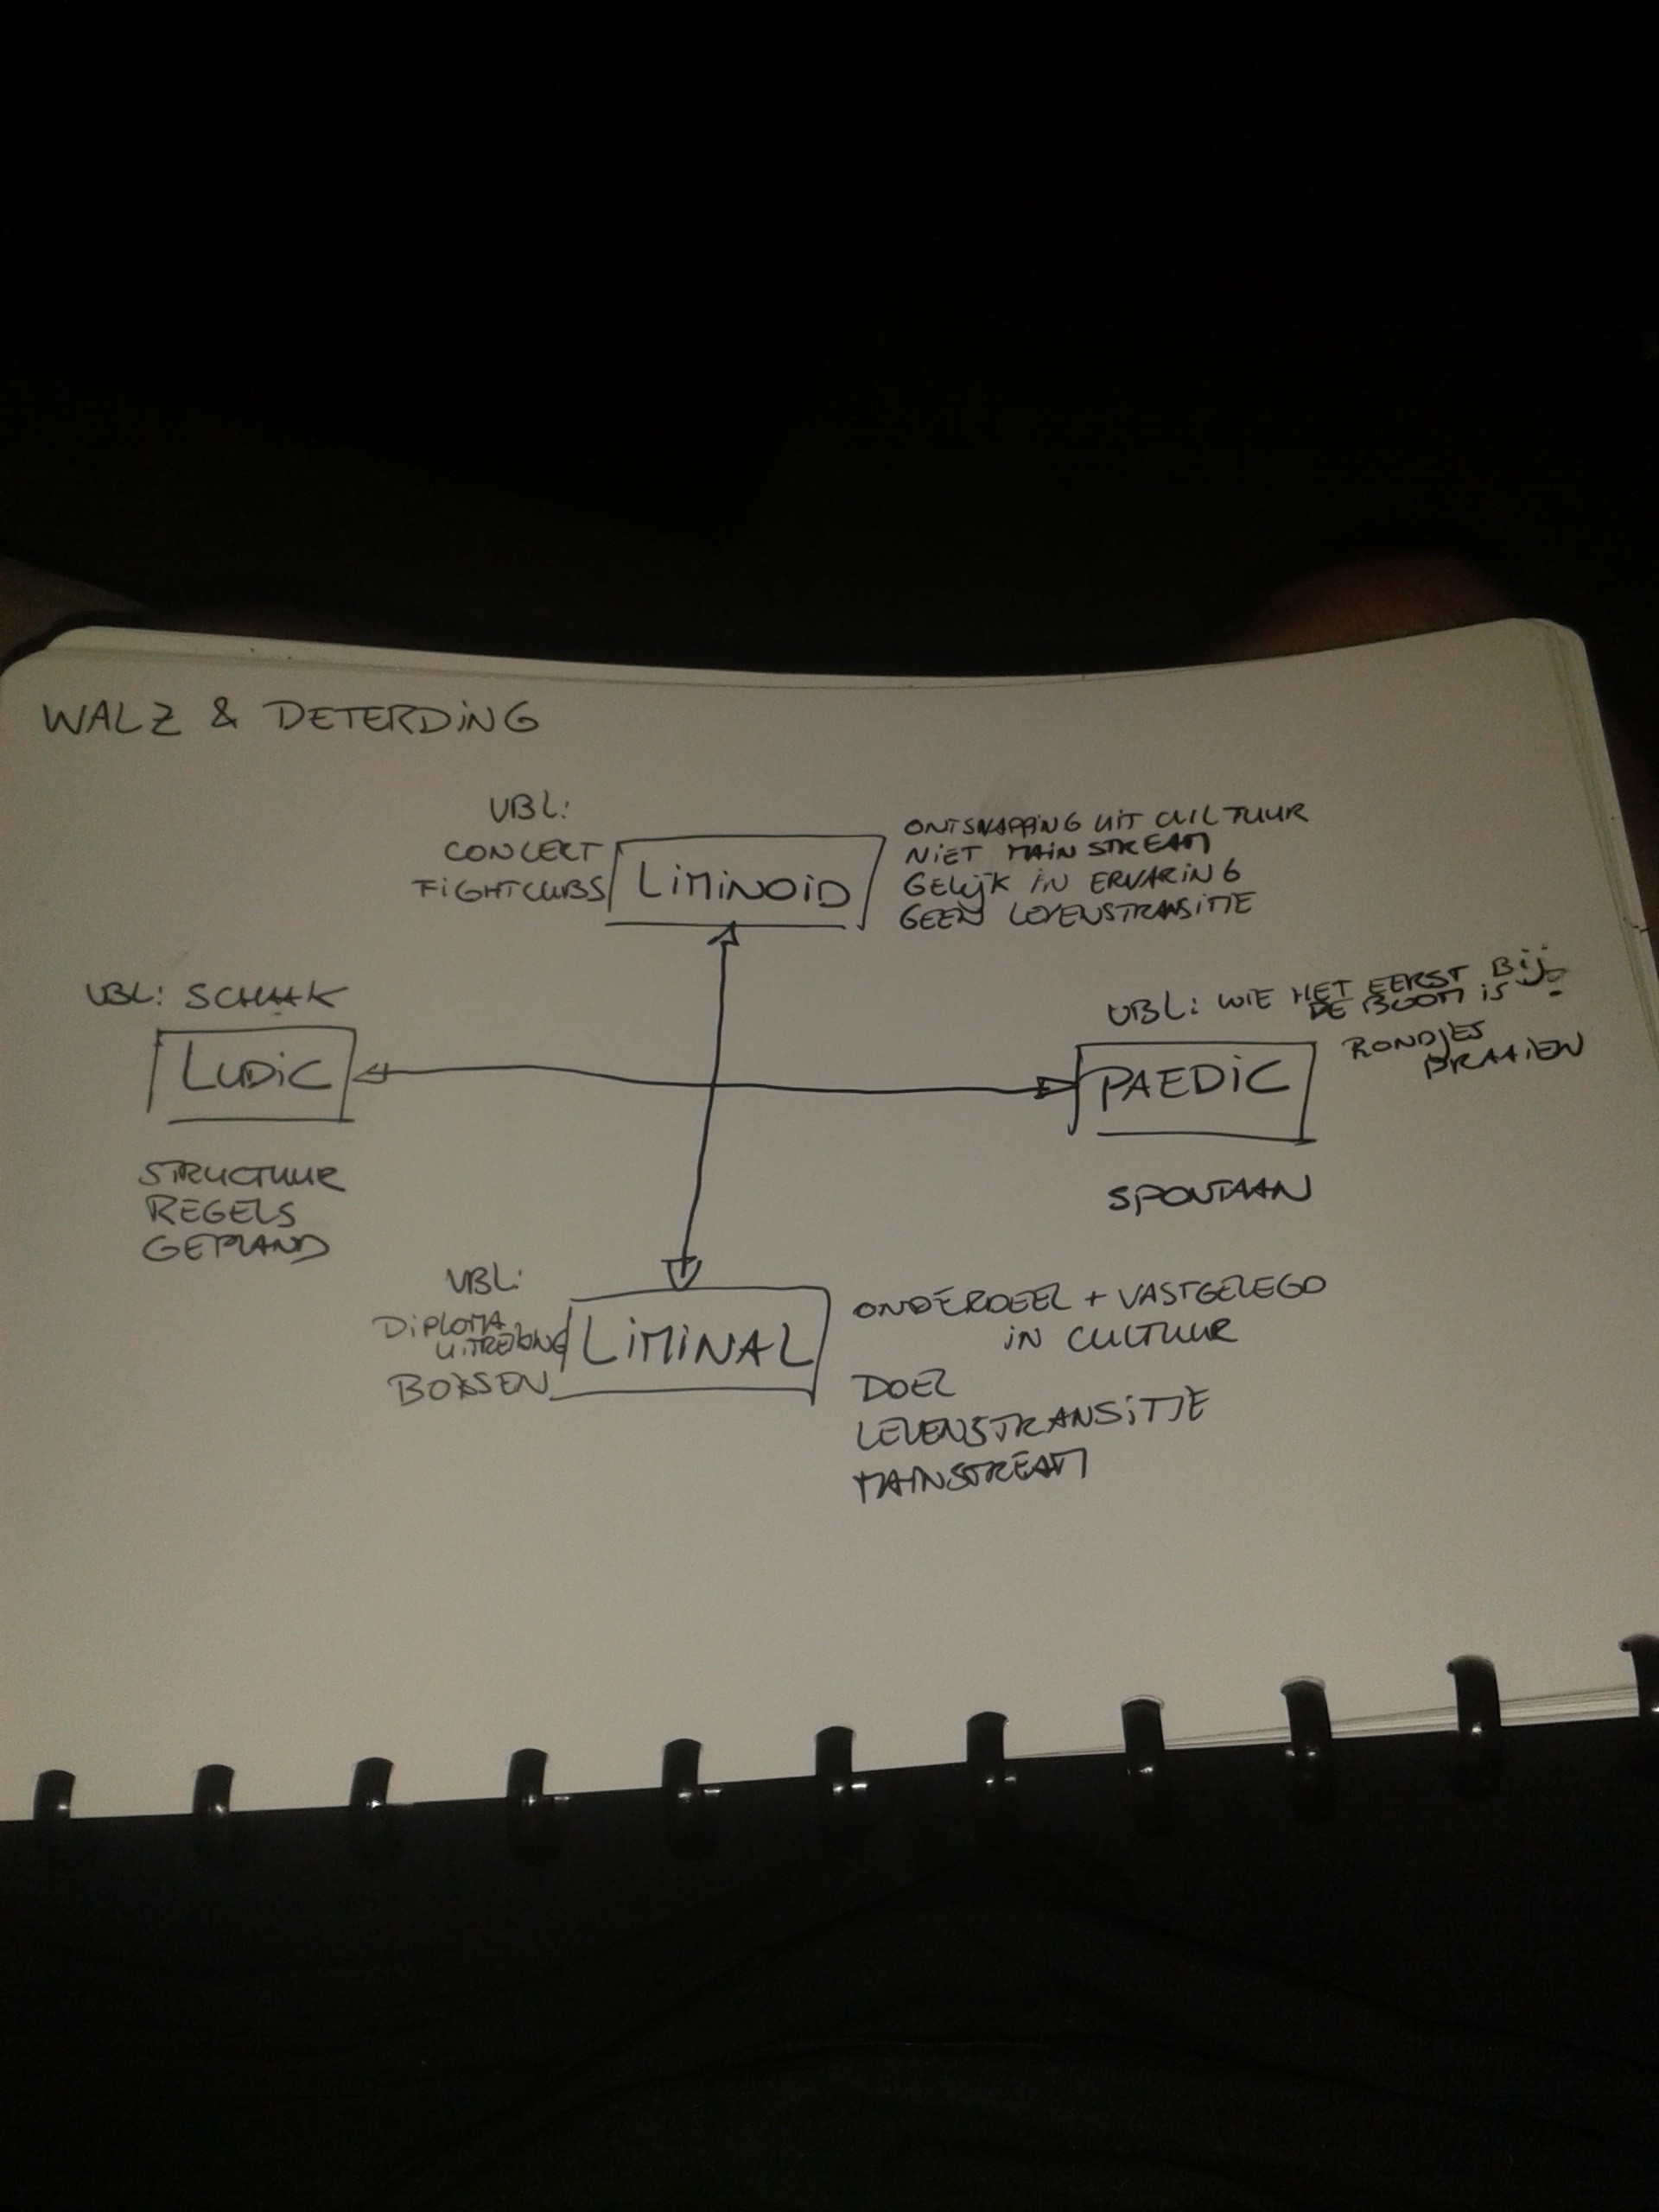 WALZ & DETERDING
VBL:
CONCERT
FIGHTCLUBS
LIMINOID
ONTSNAPPING UIT CULTUUR
NIET MAINSTREAM
GELIJK IN ERVARING
GEEN LEVENSTRANSITIE
VBL: SCHAAK
LUDIC
STRUCTUUR
REGELS
GEPLAND
VBL: WIE HET EERST BIJ
DE BOOM IS
RONDJES
DRAAIEN
PAEDIC
SPONTAAN
VBL:
DIPLOMA
UITREIKING
BOKSEN
LIMINAL
ONDERDEEL + VASTGELEGD
IN CULTUUR
DOEL
LEVENSTRANSITIE
MAINSTREAM